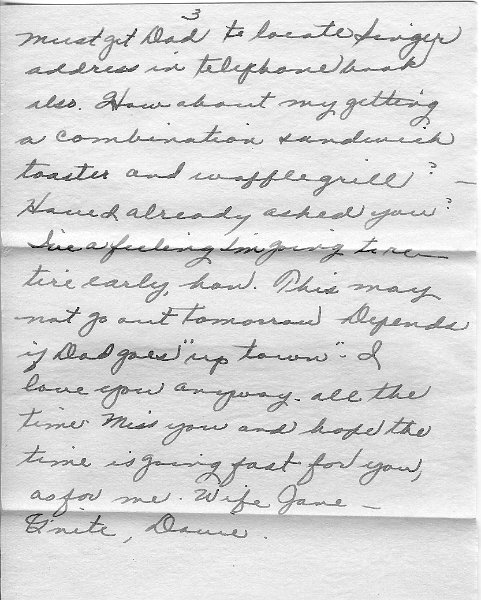 3
must get Dad to locate Singer
address in telephone book
also. How about my getting
a combination sandwich
toaster and waffle grill? —
Have I already asked you?
I've a feeling I'm going to re—
tire early, hon. This may
not go out tomorrow Depends
if Dad goes "up town". I
love you anyway. all the
time Miss you and hope the
time is going fast for you,
as for me. Wife Jane —
G'nite,